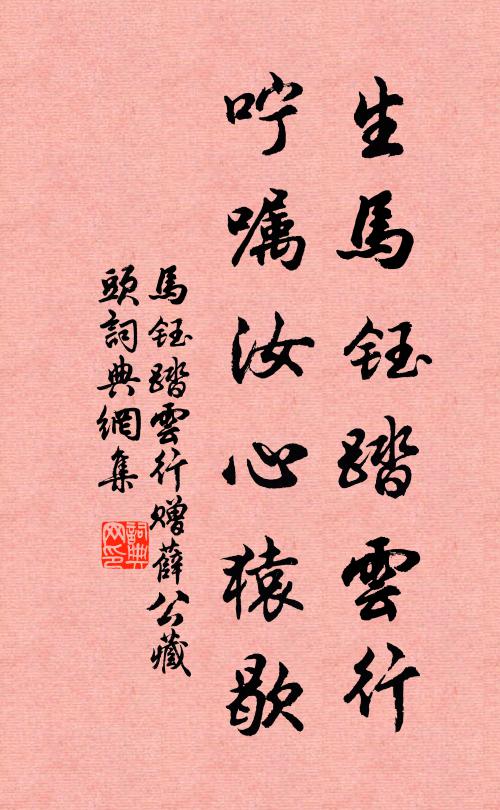 生馬鈺踏雲行
咛嘱汝心猿歇
馬鈺踏雲行赠薛公藏
頭詞典網集
詞典
网印